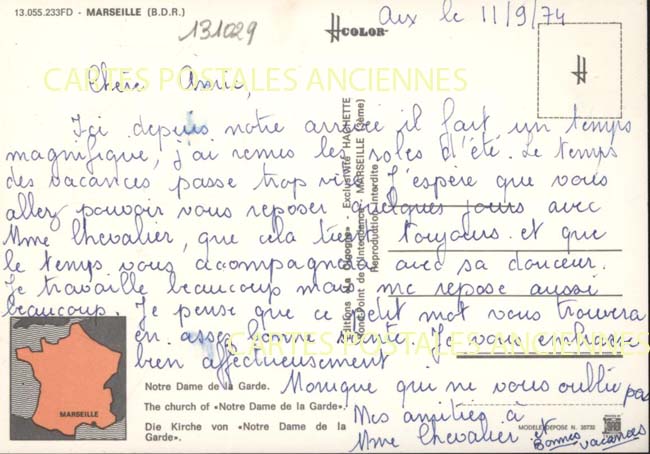 13.055.233FD - MARSEILLE (B.D.R.)
131029
H COLOR
Aix le 11/9/74
CARTES POSTALES ANCIENNES
Chère Annie,
Ici depuis notre arrivée il fait un temps
magnifique, j'ai remis les robes d'été. Le temps
des vacances passe trop vite. J'espère que vous
allez pouvoir vous reposer quelques jours avec
Mme Chevalier, que cela tient toujours et que
le temps vous accompagnera avec sa douceur.
Je travaille beaucoup mais me repose aussi
beaucoup. Je pense que ce petit mot vous trouvera
en assez bonne santé. Je vous embrasse
bien affectueusement
CARTES POSTALES ANCIENNES
Monique qui ne vous oublie pas
Mes amitiés à
Mme Chevalier et
Bonnes vacances
Editions «La Cigogne» - Exclusivité HACHETTE
Rond-Point de l'Intendance - MARSEILLE (3ème)
Reproduction interdite
MARSEILLE
Notre Dame de la Garde.
The church of «Notre Dame de la Garde».
Die Kirche von «Notre Dame de la
Garde».
MODELE DEPOSE N. 30732